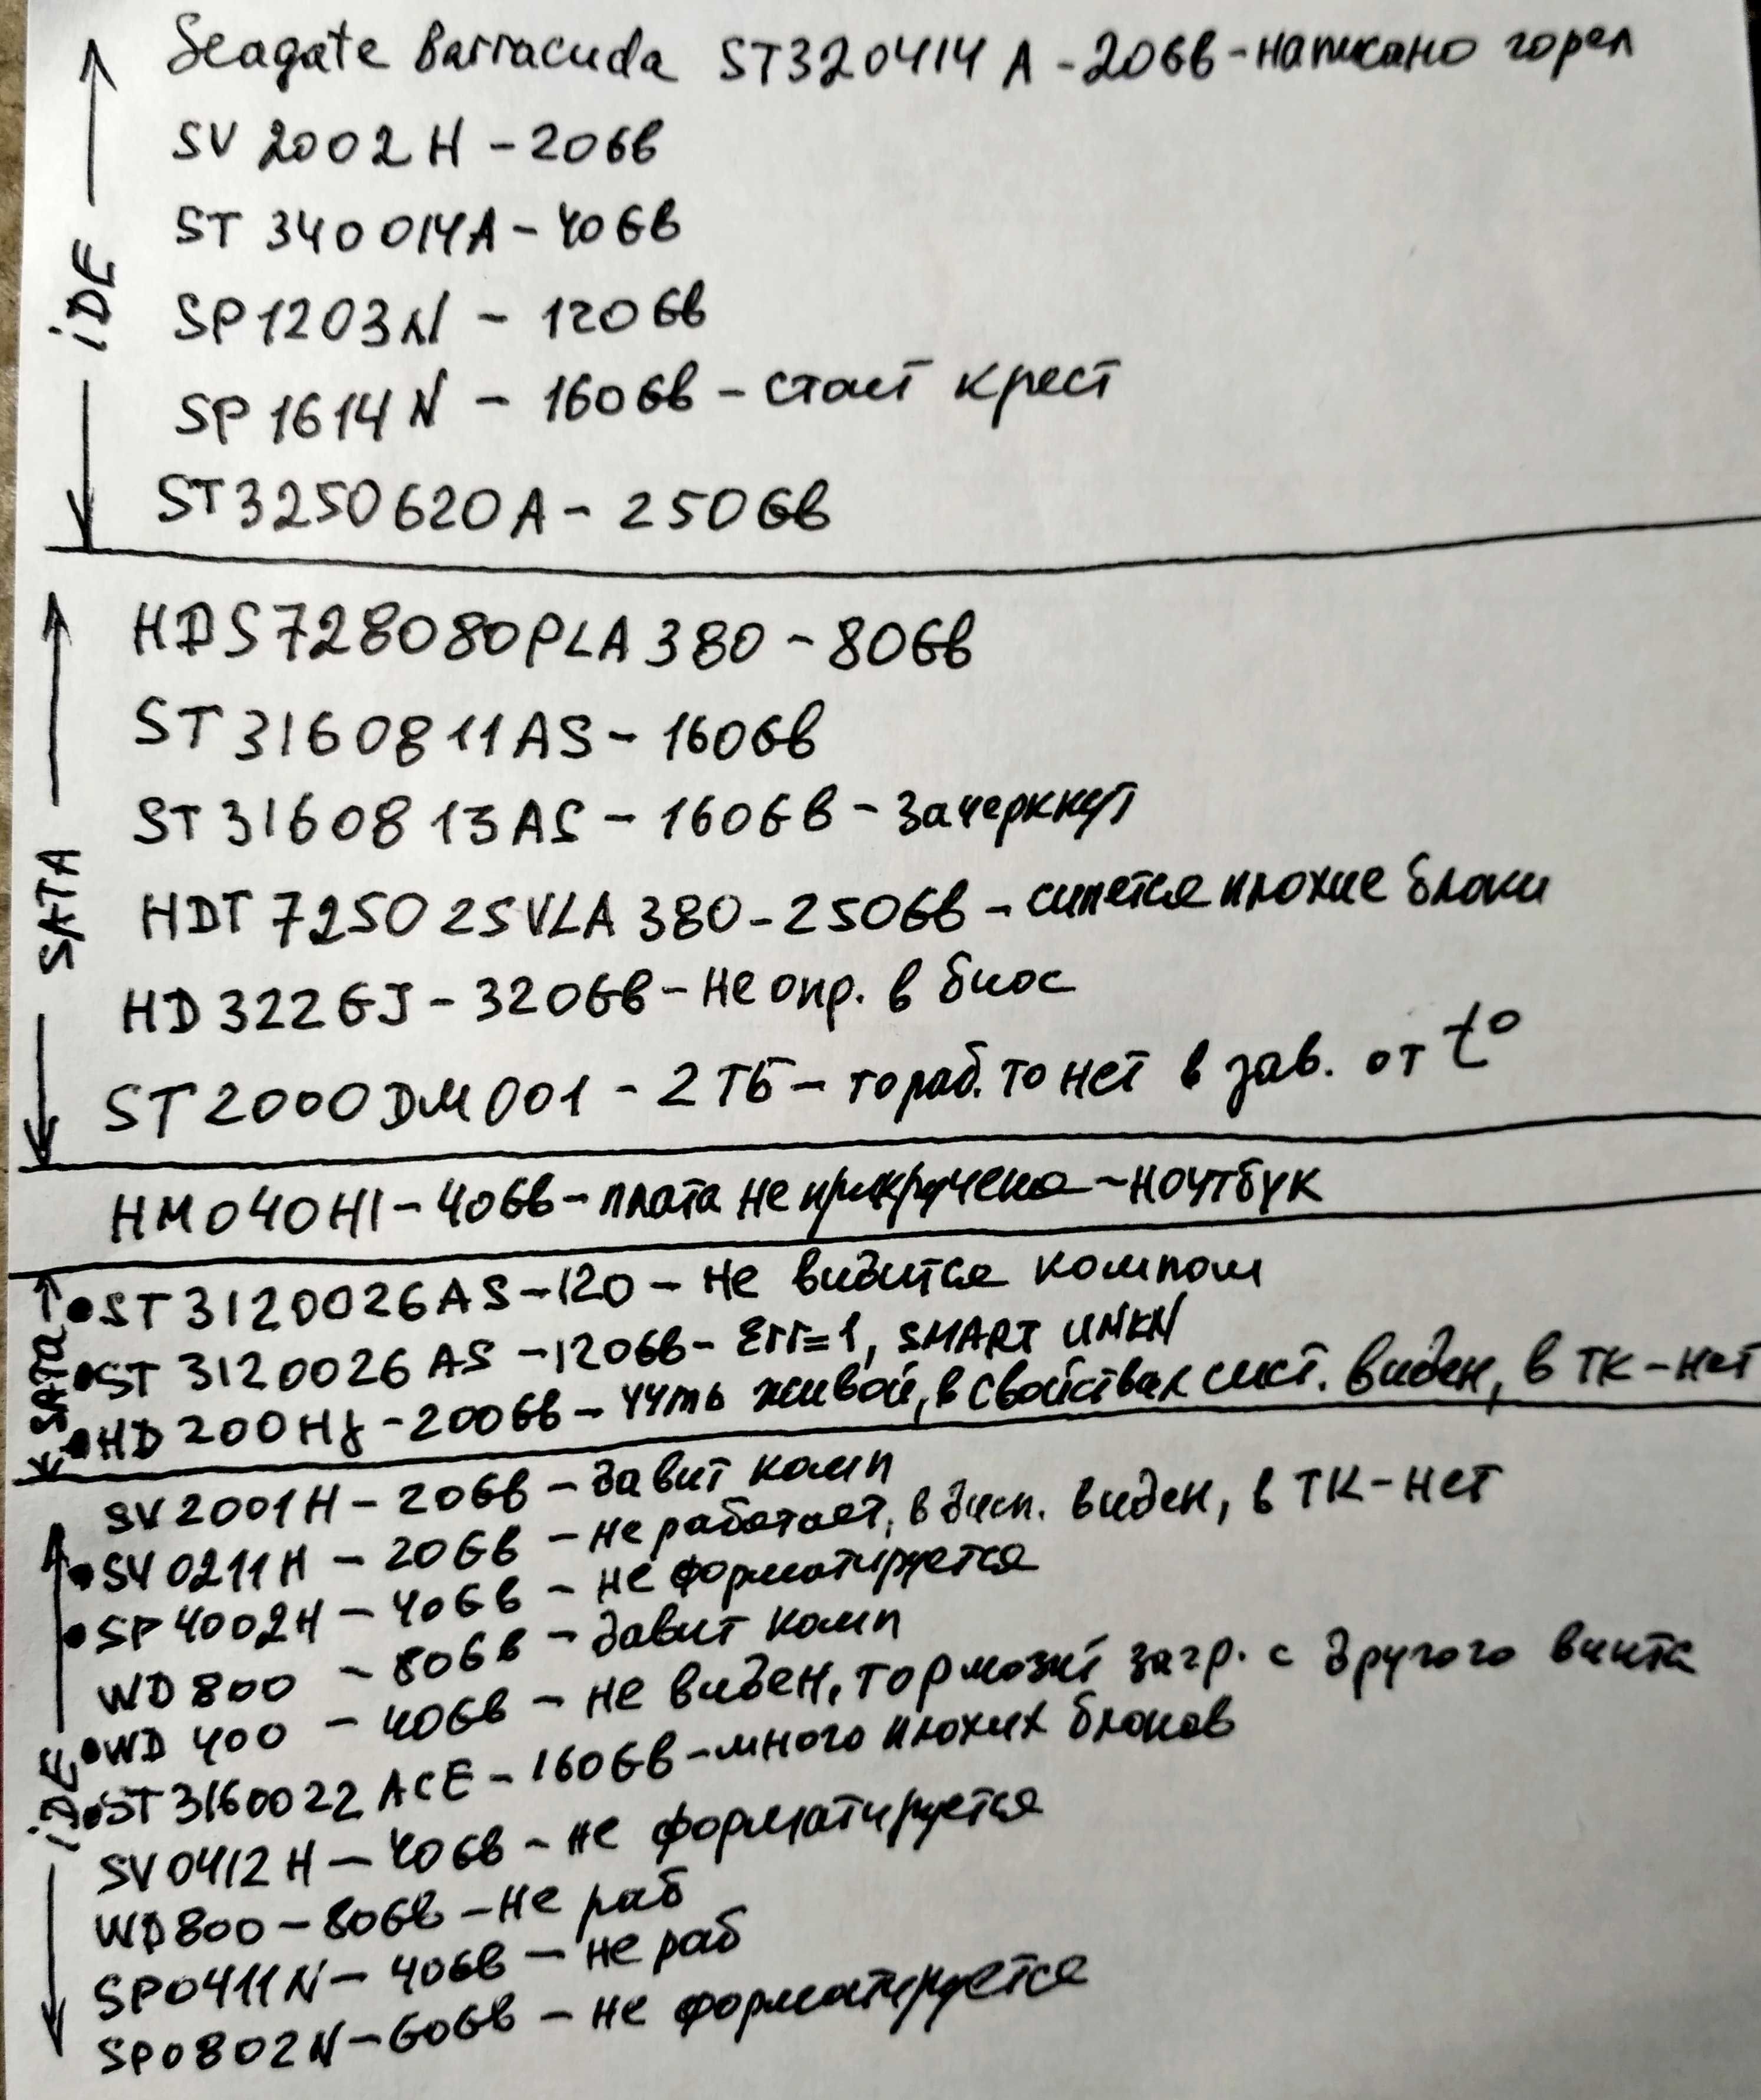 Seagate Barracuda ST320414A - 20GB - написано горел
SV2002H - 20GB
ST340014A - 40GB
SP1203N - 120GB
SP1614N - 160GB - стоит крест
ST3250620A - 250GB
IDE
HDS728080PLA380 - 80GB
ST3160811AS - 160GB
ST3160813AS - 160GB - зачеркнут
HDT725025VLA380 - 250GB - сыпется плохие блоки
HD322GJ - 320GB - Не опр. в биос
ST2000DM001 - 2ТБ - то раб. то нет в зав. от t°
SATA
HM040HI - 40GB - плата не прикручена - ноутбук
ST3120026AS - 120 - не видится компом
ST3120026AS - 120GB - Err=1, SMART UNKN
HD200HJ - 200GB - чуть живой, в свойствах сист. виден, в ТК - нет
SATA
SV2001H - 20GB - давит комп
SV0211H - 20GB - не работает, в дисп. виден, в ТК - нет
SP4002H - 40GB - не форматируется
WD800 - 80GB - давит комп
WD400 - 40GB - не виден, тормозит загр. с другого винта
ST3160022ACE - 160GB - много плохих блоков
SV0412H - 40GB - не форматируется
WD800 - 80GB - не раб
SP0411N - 40GB - не раб
SP0802N - 60GB - не форматируется
IDE